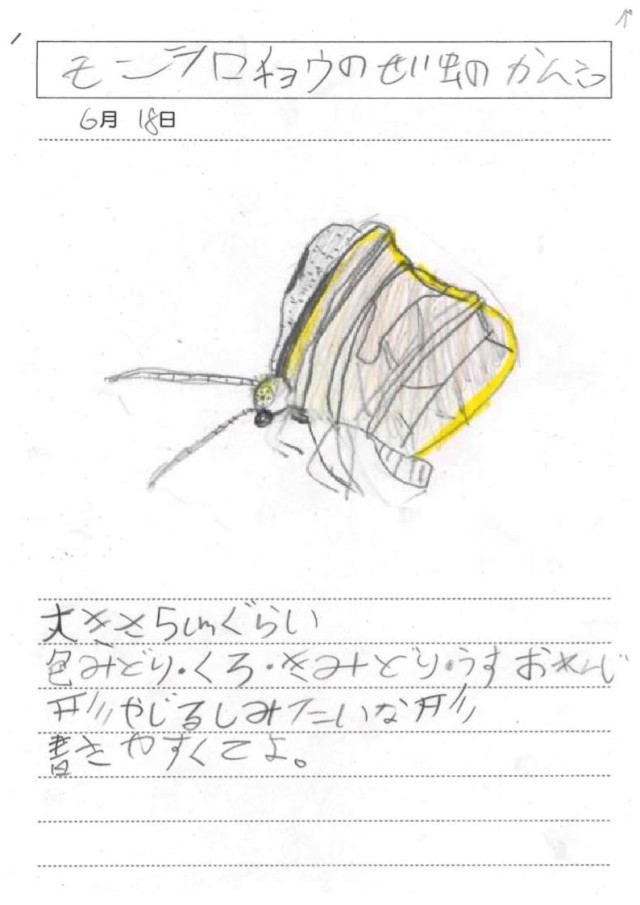 モンシロチョウのせい虫のかんさつ
6月 18日
大きさ5cmぐらい
色みどり・くろ・きみどり・うすおれんじ
形やじるしみたいな形
書きやすくてよ。